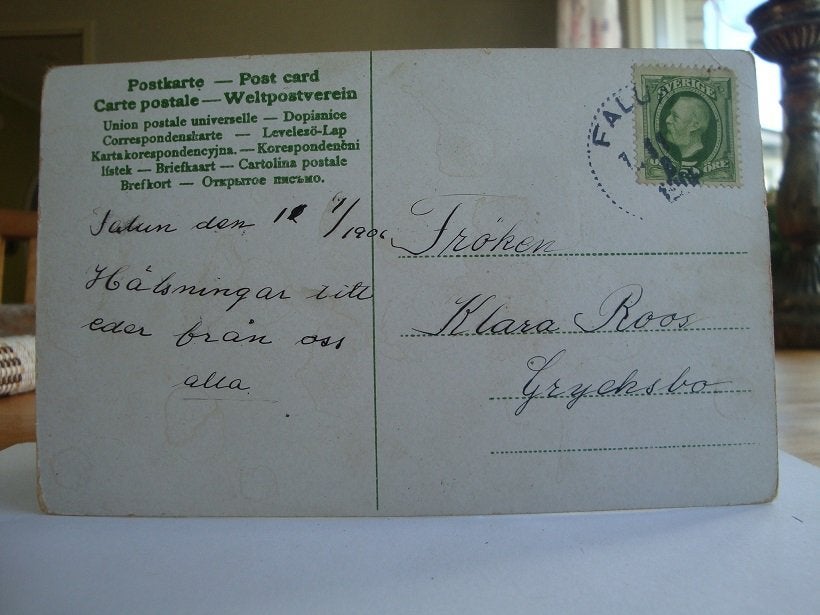 Postkarte — Post card
Carte postale — Weltpostverein
Union postale universelle — Dopisnice
Correspondenskarte — Levelező-Lap
Karta korespondencyjna. — Korespondenční
lístek — Briefkaart — Cartolina postale
Brefkort — Открытое письмо.
Falun den 1/1906
Hälsningar till
eder från oss
alla.
Fröken
Klara Roos
Grycksbo
SVERIGE
ÖRE
FALU